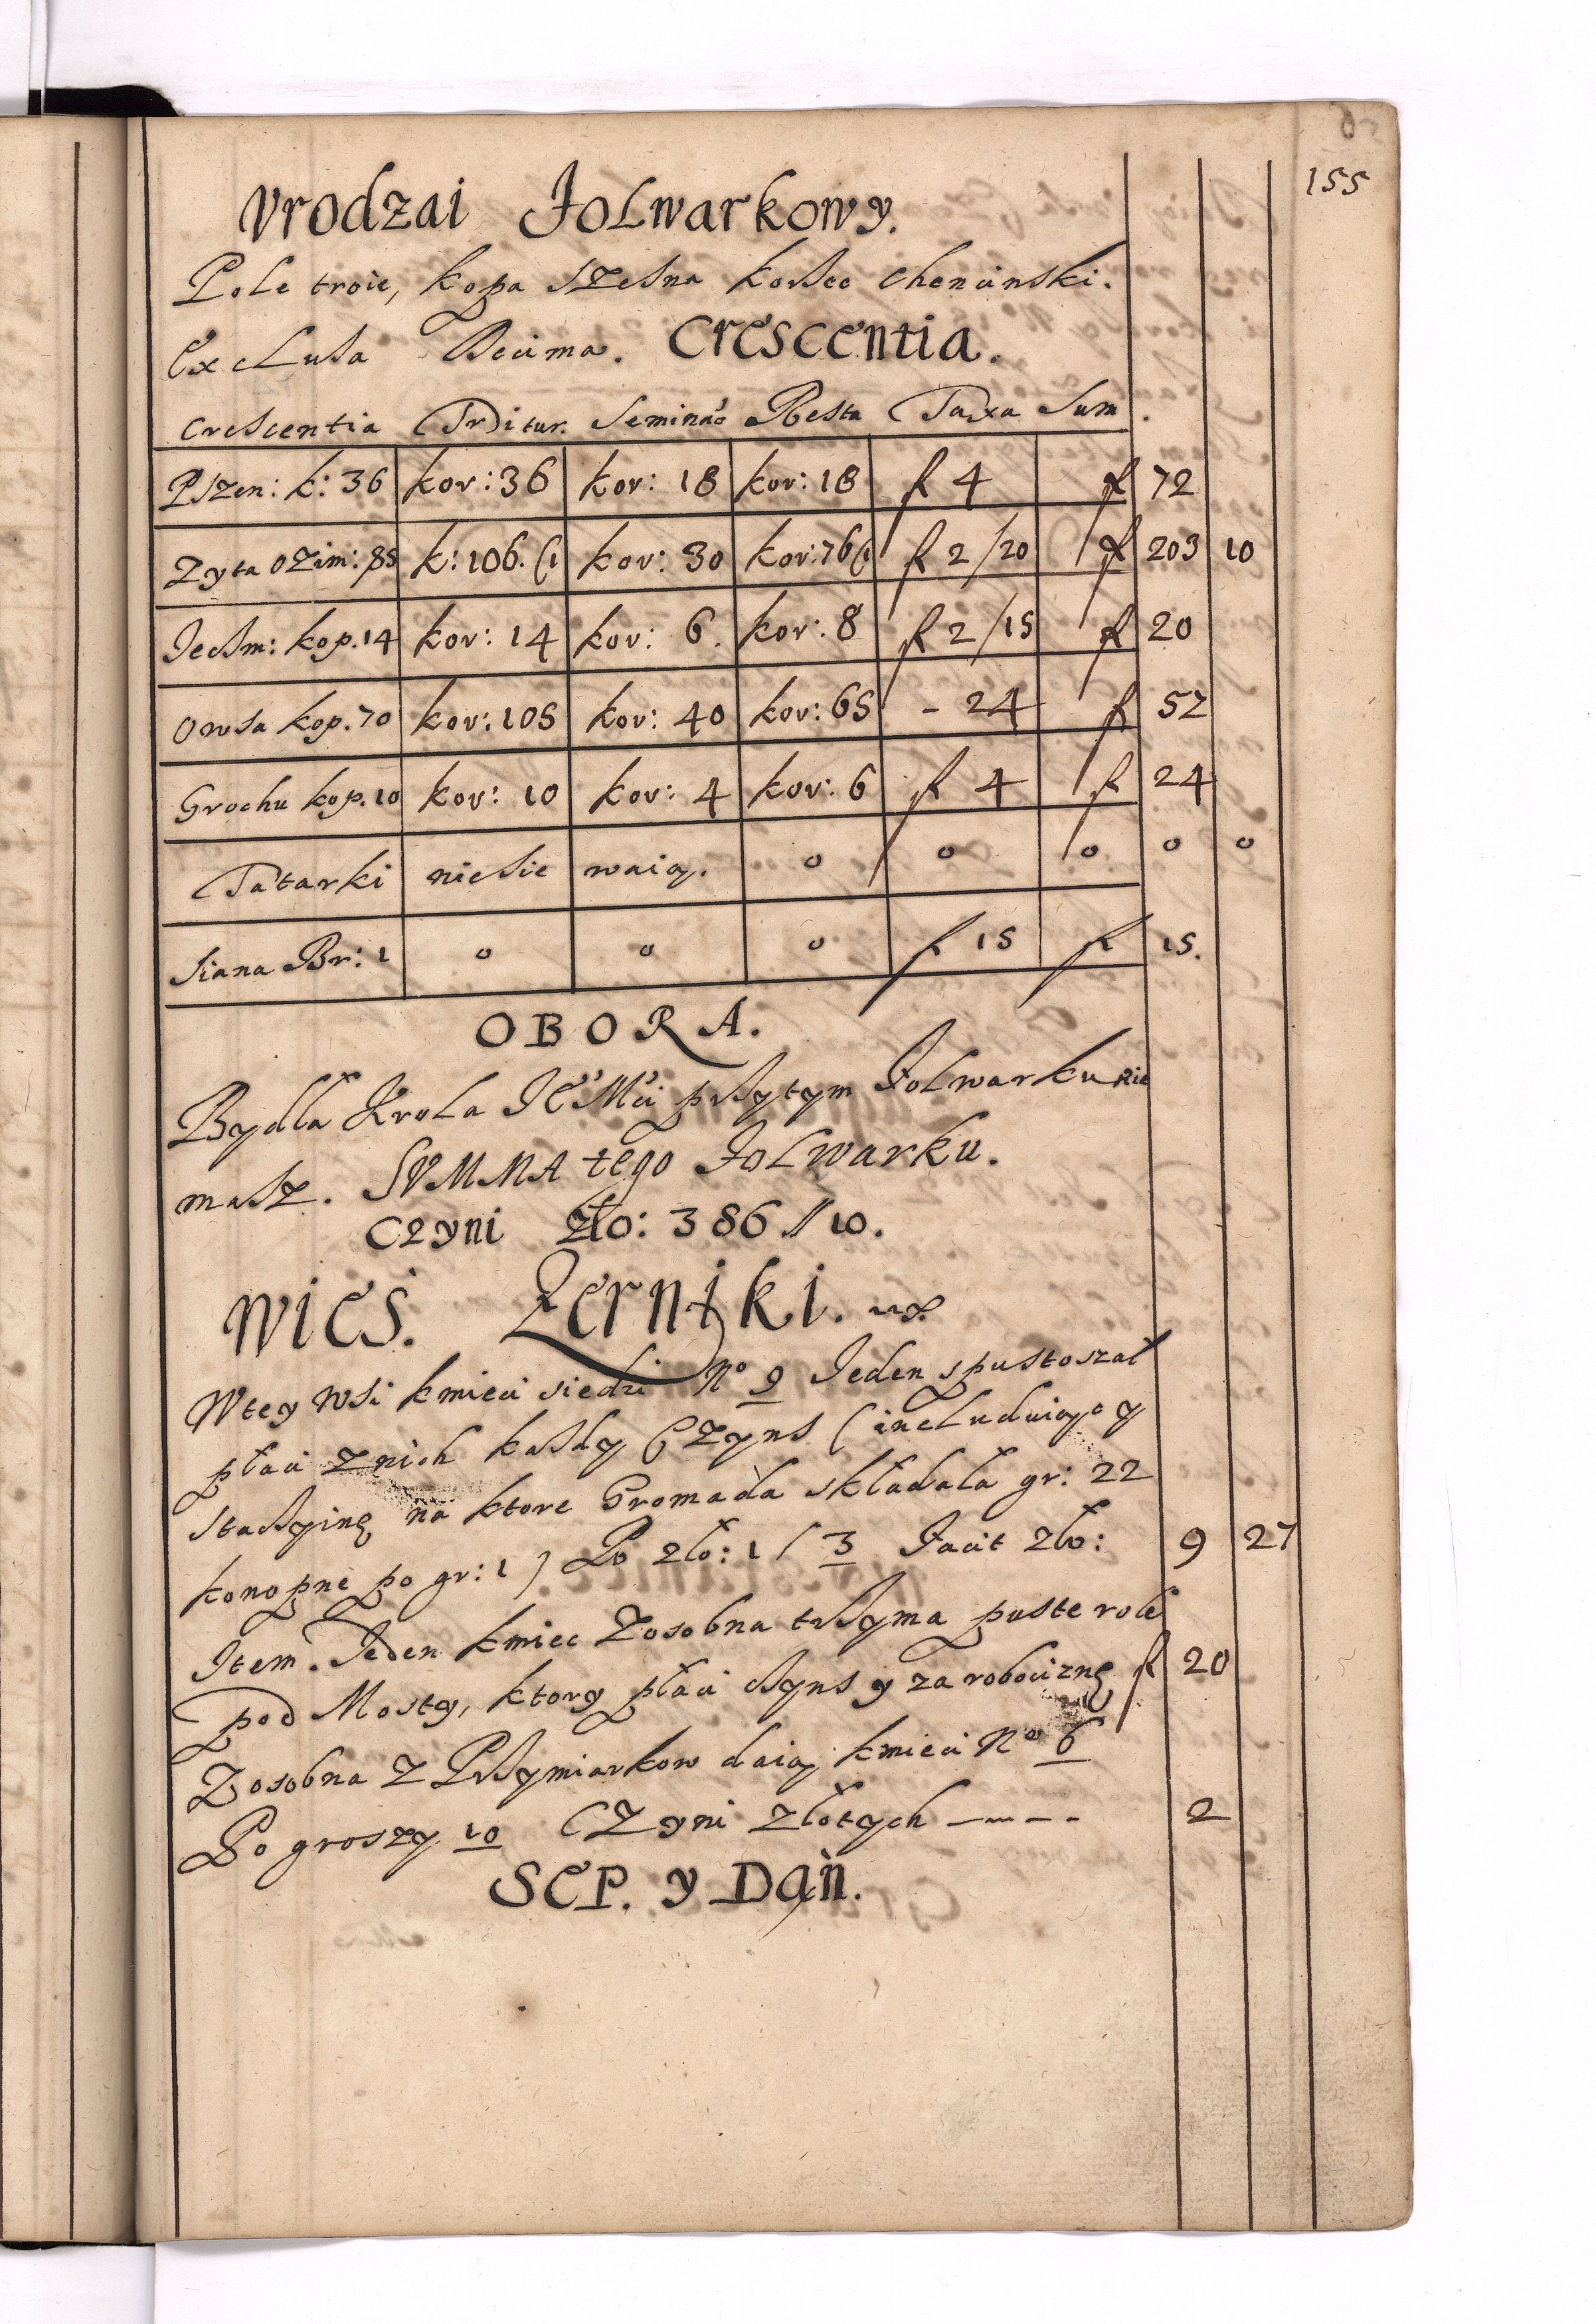 155
Vrodzai Folwarkowy.
Pole troie, kopa szesna korsec Chencinski.
Exclusa Decima. Crescentia.
Crescentia Tritur. Seminao Resta Taxa Sum.
Pszen: k: 36 kor: 36 kor: 18 kor: 18 f 4 f 72
Zyta Ozim: 85 k: 106. (1 kor: 30 kor: 76 (1 f 2/20 f 203 10
Jecsm: kop. 14 kor: 14 kor: 6. kor: 8 f 2/15 f 20
Owsa kop. 70 kor: 105 kor: 40 kor: 65 - 24 f 52
Grochu kop. 10 kor: 10 kor: 4 kor: 6 f 4 f 24
Tatarki niesie waią. 0 0 0 0 0
Siana Br: 1 0 0 0 f 15 f 15.
OBORA.
Bydła Krola JE° Mci przytym Folwarku nie
masz. SVMMA tego Folwarku.
Czyni zło: 386 // 10.
WIEŚ. Zerniki.
W tey wsi kmieci siedzi N° 9 Jeden spustoszał
płaci z nich kasdy Czyns (includuiąc y
stacyinę na ktore Gromada składała gr: 22
konopne po gr: 1) Po zło: 1 / 3 Facit zło: 9 27
Item. Jeden kmiec Zosobna trzyma puste role
pod Mosty, ktory płaci czyns y za robociznę f 20
Zosobna z Przymiarkow daią kmieci N° 6
Po groszy 10 Czyni złotych ----- 2
SEP. y Dań.